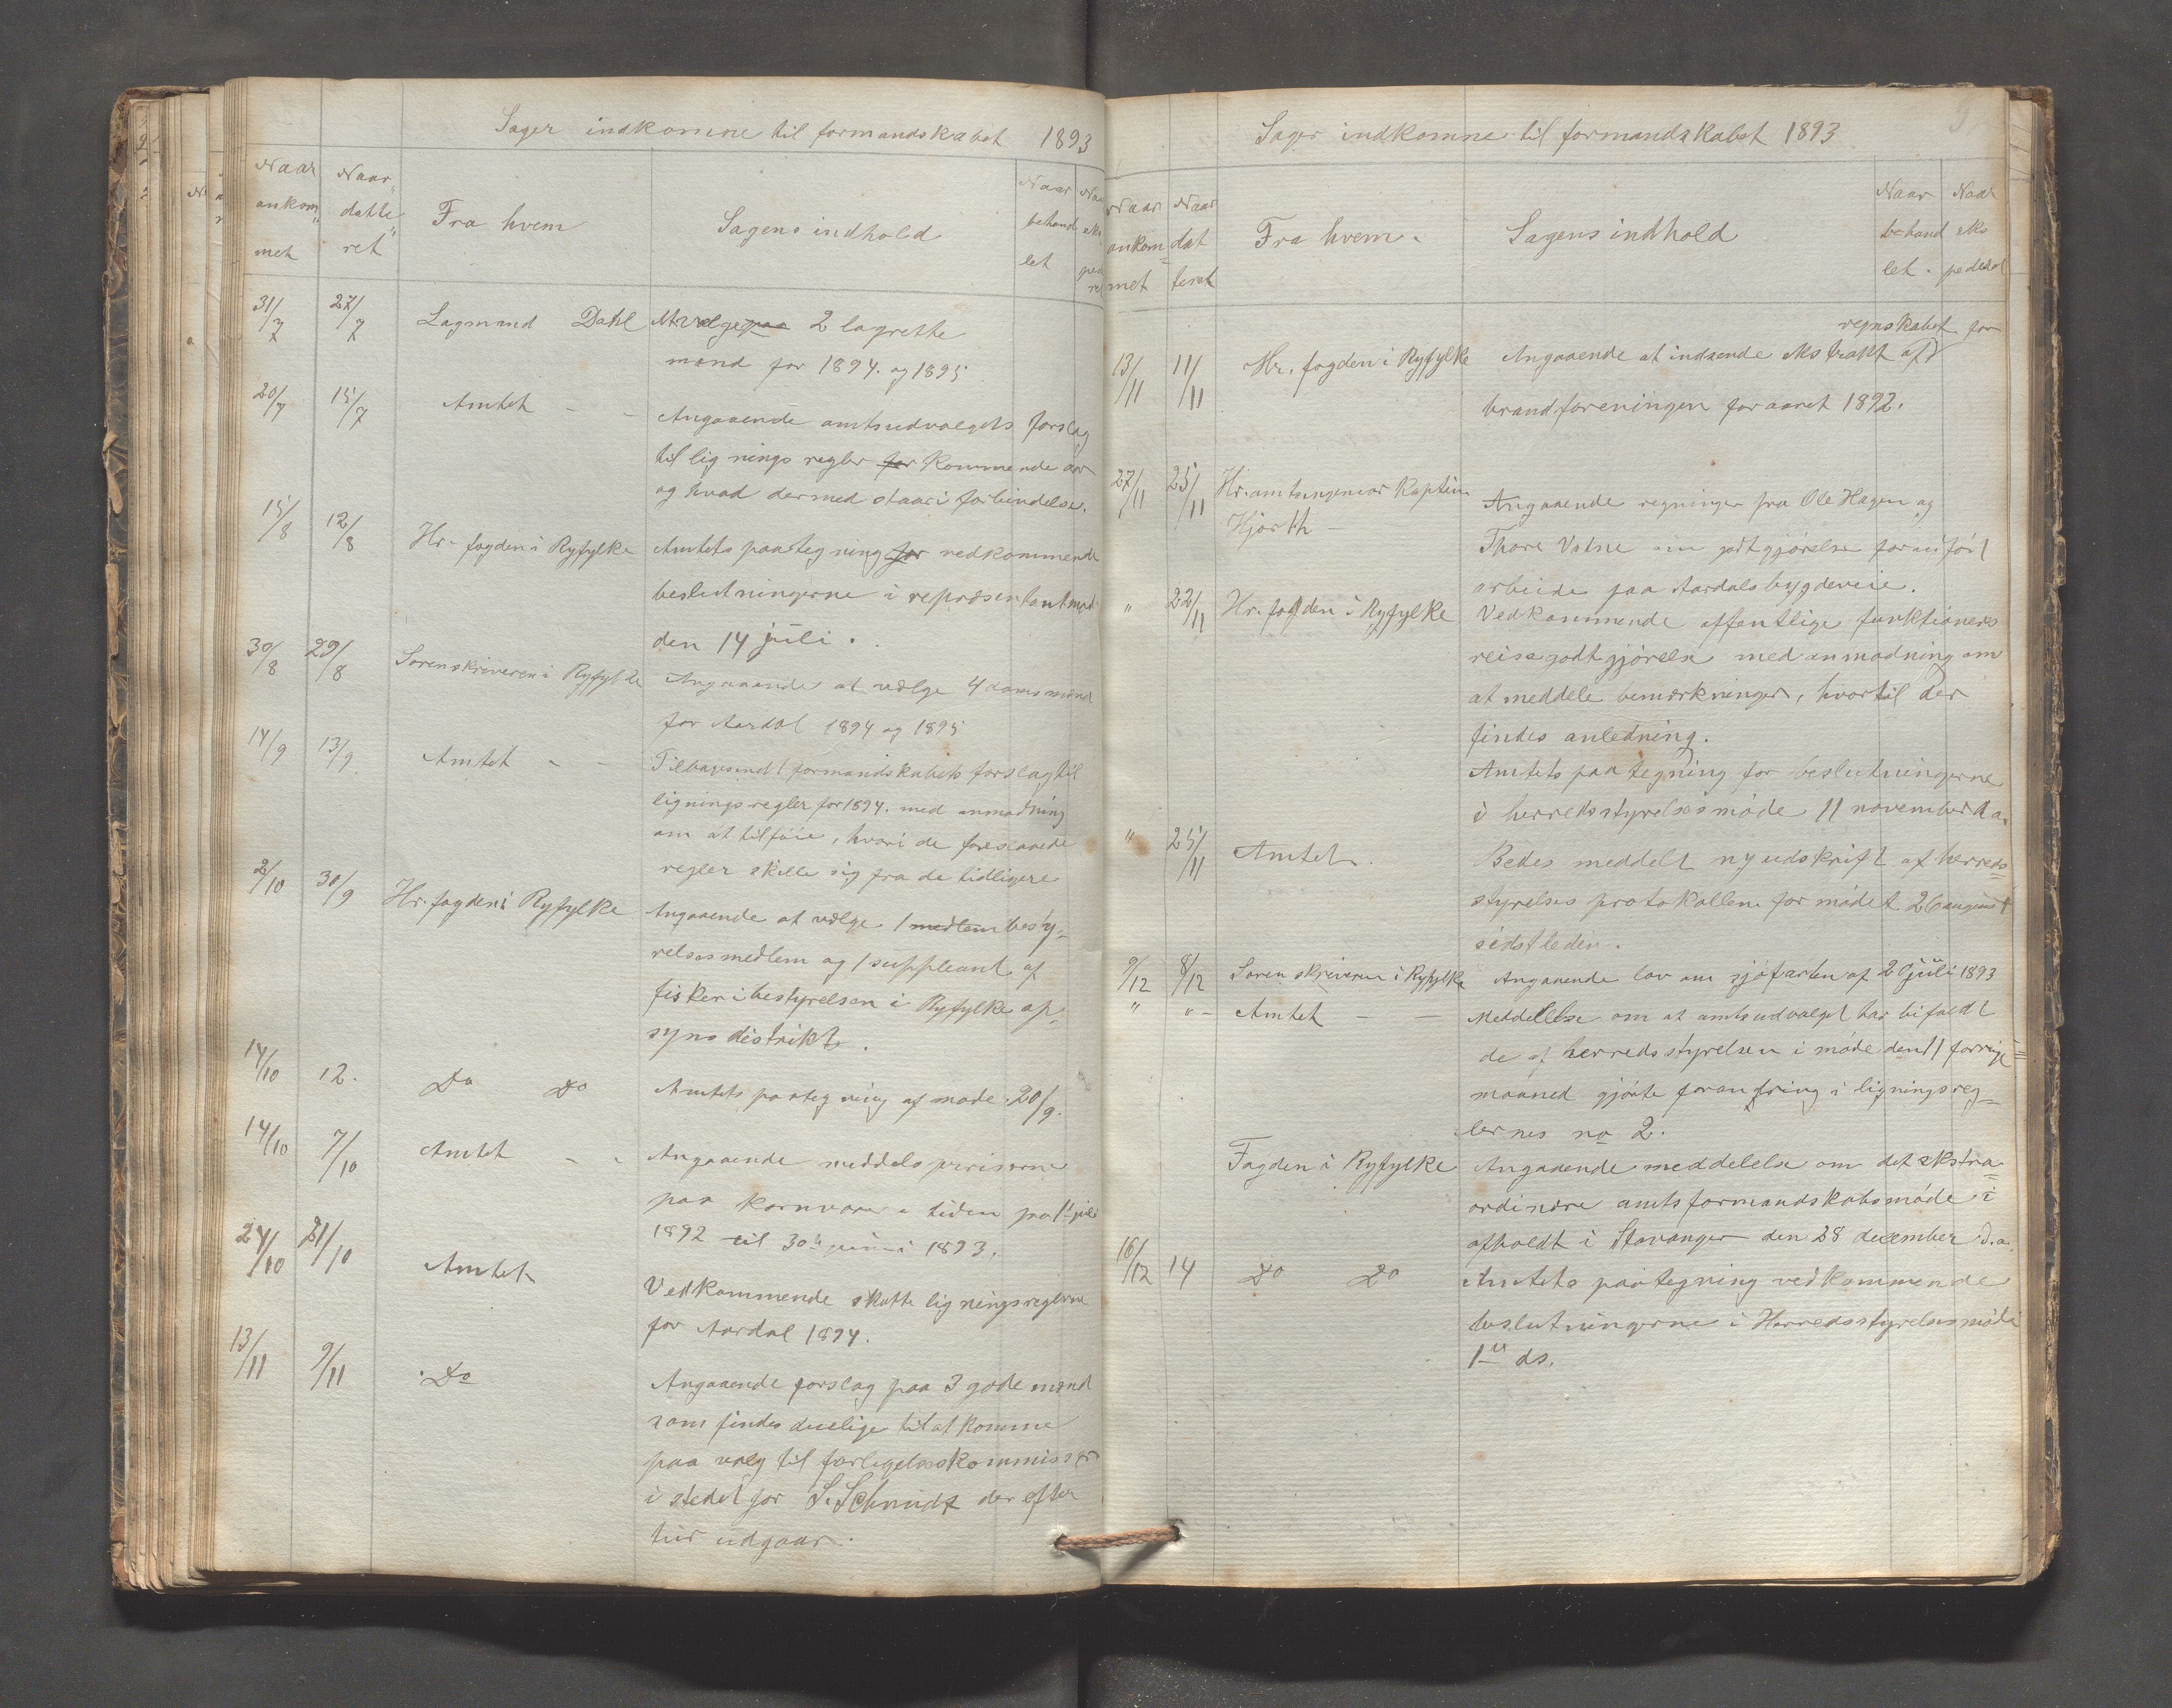 Sager indkomne til formandskabet 1893
Naar ankom„ met
Naar„ datte„ ret
Fra hvem
Sagens indhold
Naar behand let
31/7 27/7 Lagmand Dahl At vælge paa 2 lagrette
mænd for 1894. og 1895
20/7 15/7 Amtet - - Angaaende amtsudvalgets forslag
til lignings regler for kommende aar
og hvad dermed staar i forbindelse.
15/8 12/8 Hr. fogden i Ryfylke Amtets paategning for vedkommende
beslutningerne i repræsentantmød
den 14 juli.
30/8 29/8 Sorenskriveren i Ryfylke Angaaende at vælge 4 domsmænd
for Aardal 1894 og 1895
14/9 13/9 Amtet - - Tilbagesendt formandskabets forslag til
ligningsregler for 1894. med anmodning
om at tilføie, hvori de foreslaaede
regler skille sig fra de tidligere
2/10 30/9 Hr. fogden i Ryfylke Angaaende at vælge 1 medlem besty=
relsesmedlem og 1 suppleant af
fiskeribestyrelsen i Ryfylke op=
syns distrikt.
14/10 12. Do Do Amtets paategning af møde 20/9.
14/10 7/10 Amtet - - Angaaende middelspriserne
paa kornvarer i tiden fra 1ste juli
1892 til 30te juni 1893.
24/10 21/10 Amtet Vedkommende skatte ligningsreglerne
for Aardal 1894.
13/11 9/11 Do Angaaende forslag paa 3 gode mænd
som findes duelige til at komme
paa valg til forligelseskommissær
i stedet for S. Schmidt der efter
tur udgaar.
Sager indkomne til formandskabet 1893
Naar ankom= met
Naar dat teret
Fra hvem.
Sagens indhold
Naar behand let.
Naar eks pederet
regnskabet for
13/11 11/11 Hr. fogden i Ryfylke Angaaende at indsende ekstrakt af
brandforeningen for aaret 1892.
27/11 25/11 Hr. amtsingeniør Kaptein Angaaende regninger fra Ole Hagen og
Hjorth - Thore Vatne om godtgjørelse for udført
arbeide paa Aardals bygdeveie.
" 22/11 Hr. fogden i Ryfylke Vedkommende offentlige funktionærs
reisegodtgjørelse med anmodning om
at meddele bemærkninger, hvortil der
findes anledning.
Amtets paategning for beslutningerne
i herredsstyrelsesmøde 11 november d.a.
" 25/11 Amtet. Bedes meddelt ny udskrift af herreds=
styrelses protokollen for mødet 26 august
sidstleden.
9/12 8/12 Sorenskriveren i Ryfylke Angaaende lov om sjøfarten af 20 juli 1893
" " - Amtet - - Meddelelse om at amtsudvalget har bifaldt
de af herredsstyrelsen i møde den 11 forrige
maaned gjorte forandring i ligningsreg=
lernes no 2.
Fogden i Ryfylke Angaaende meddelelse om det ekstra=
ordinære amtsformandskabsmøde i
afholdt i Stavanger den 28 december d.a.
16/12 14 Do Do Amtets paategning vedkommende
beslutningerne i Herredsstyrelsesmøde
1ste ds.